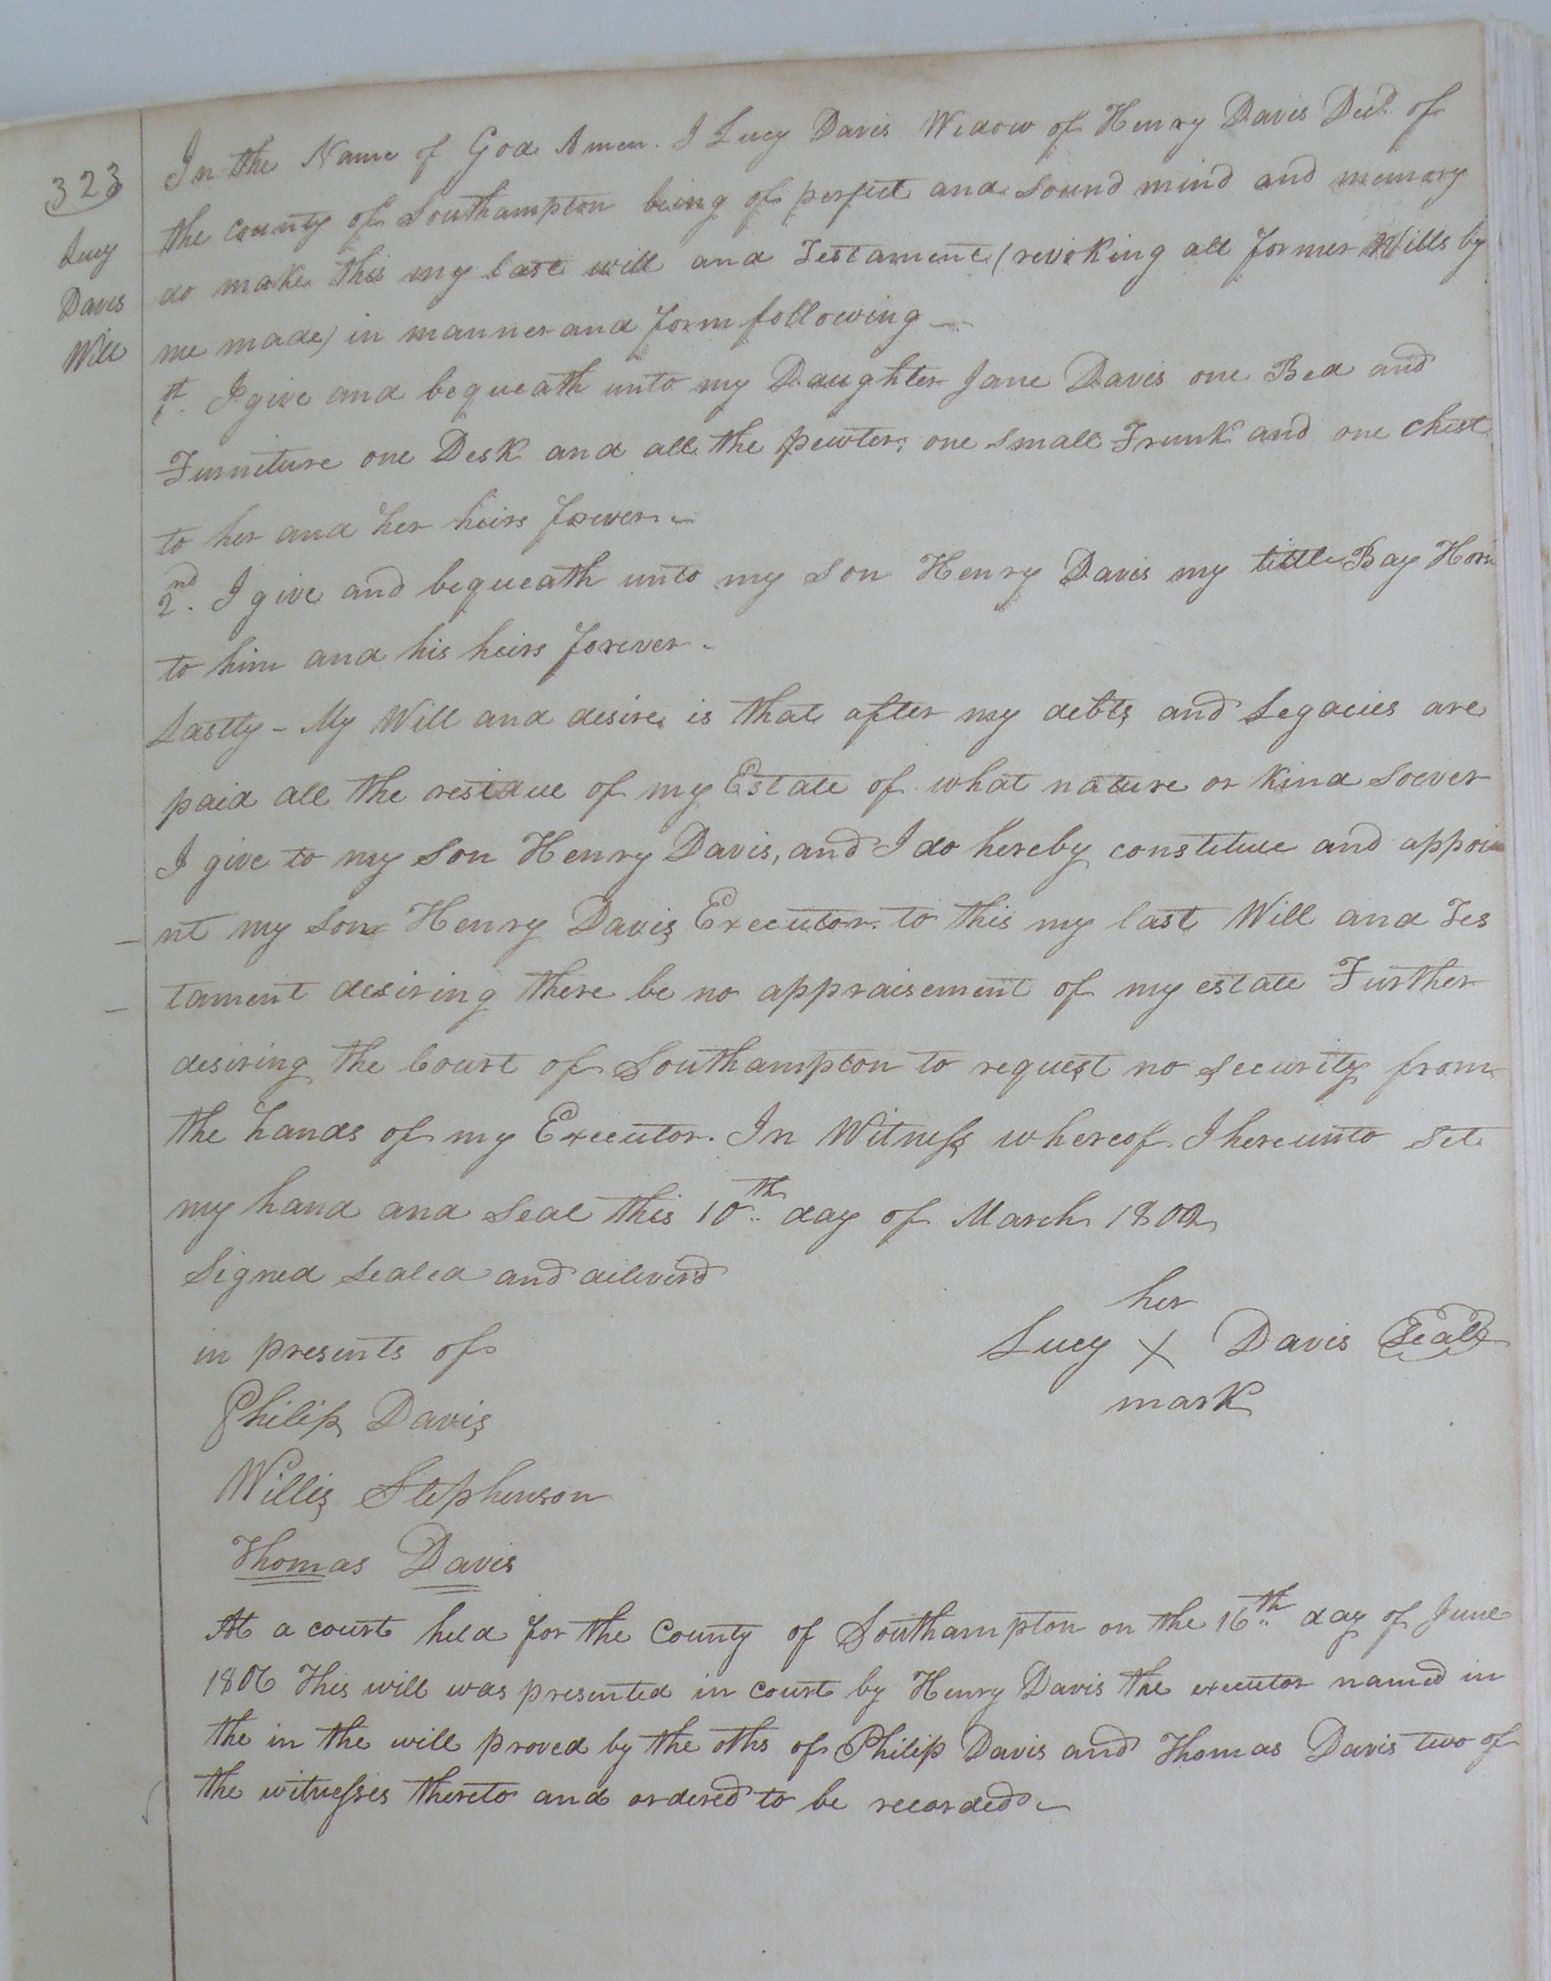 323
Lucy
Davis
Will
In the Name of God Amen. I Lucy Davis Widow of Henry Davis Decd. of
the county of Southampton being of perfect and sound mind and memory
do make this my last will and Testament (revoking all former Wills by
me made) in manner and form following
1st. I give and bequeath unto my Daughter Jane Davis one Bed and
Furniture one Desk and all the pewter, one small Trunk and one chest
to her and her heirs forever.
2nd. I give and bequeath unto my son Henry Davis my little Bay Horse
to him and his heirs forever.
Lastly - My Will and desire is that after my debts and Legacies are
paid all the residue of my Estate of what nature or kind soever
I give to my son Henry Davis, and I do hereby constitute and appoi
nt my son Henry Davis Executor to this my last Will and Tes
tament desiring there be no appraisement of my estate Further
desiring the Court of Southampton to request no security from
the hands of my Executor. In Witness whereof I hereunto set
my hand and seal this 10th day of March 1802
Signed sealed and deliver'd
in presents of
her
Lucy X Davis Seal
mark
Philip Davis
Willis Stephenson
Thomas Davis
At a court held for the County of Southampton on the 16th day of June
1806 This will was presented in court by Henry Davis the executor named in
the in the will proved by the oths of Philip Davis and Thomas Davis two of
the witnesses thereto and ordered to be recorded